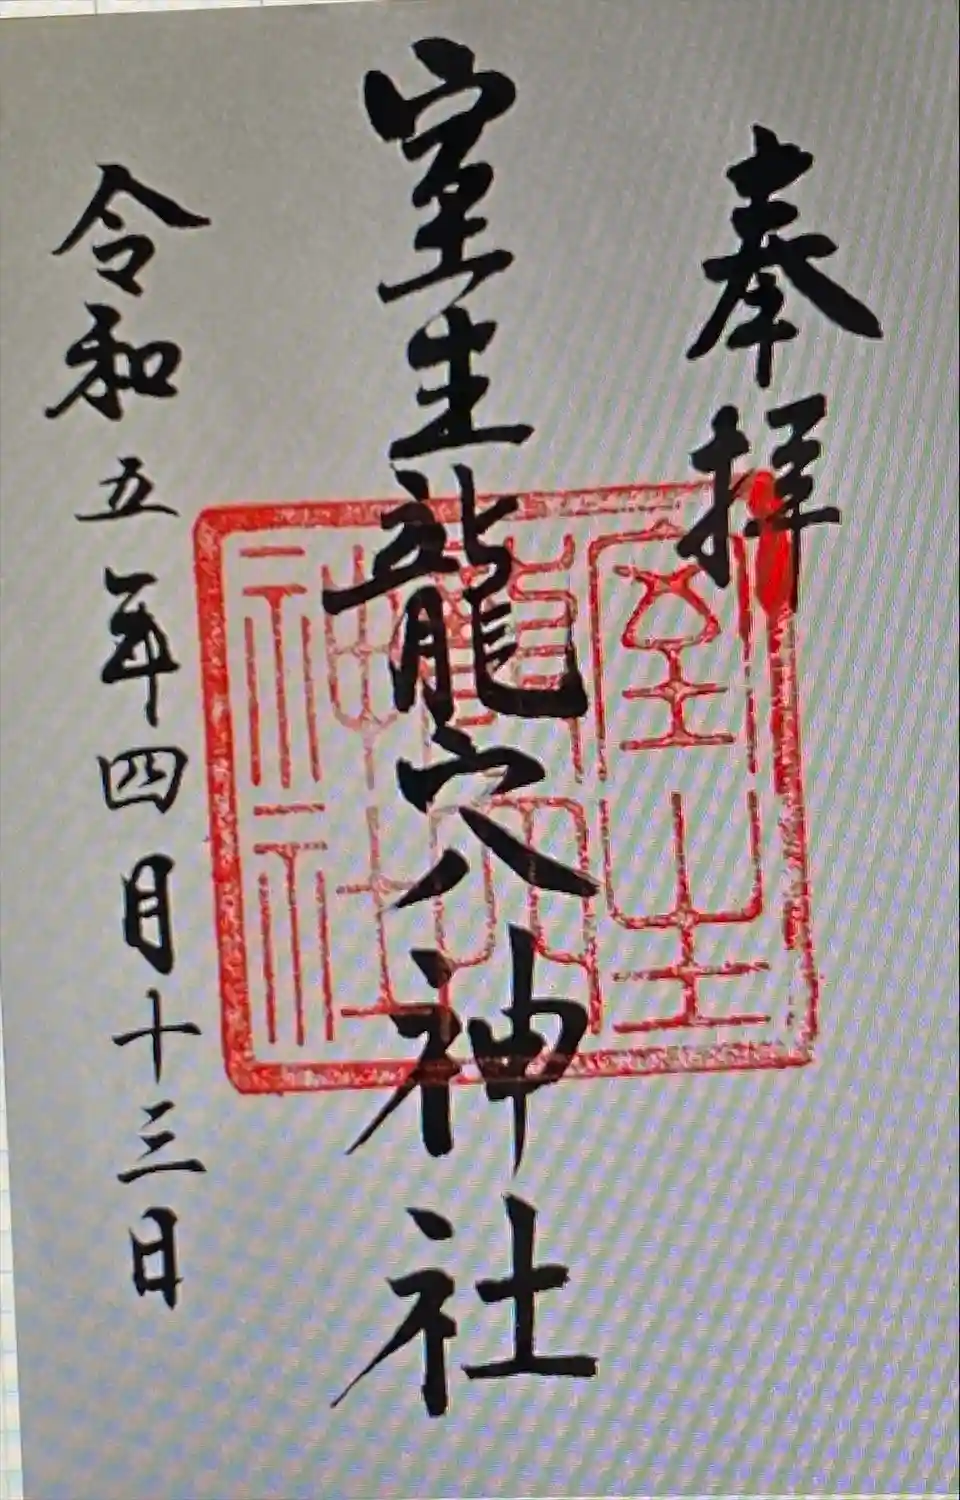 奉拝
室生龍穴神社
令和五年四月十三日
室生
龍穴
神社